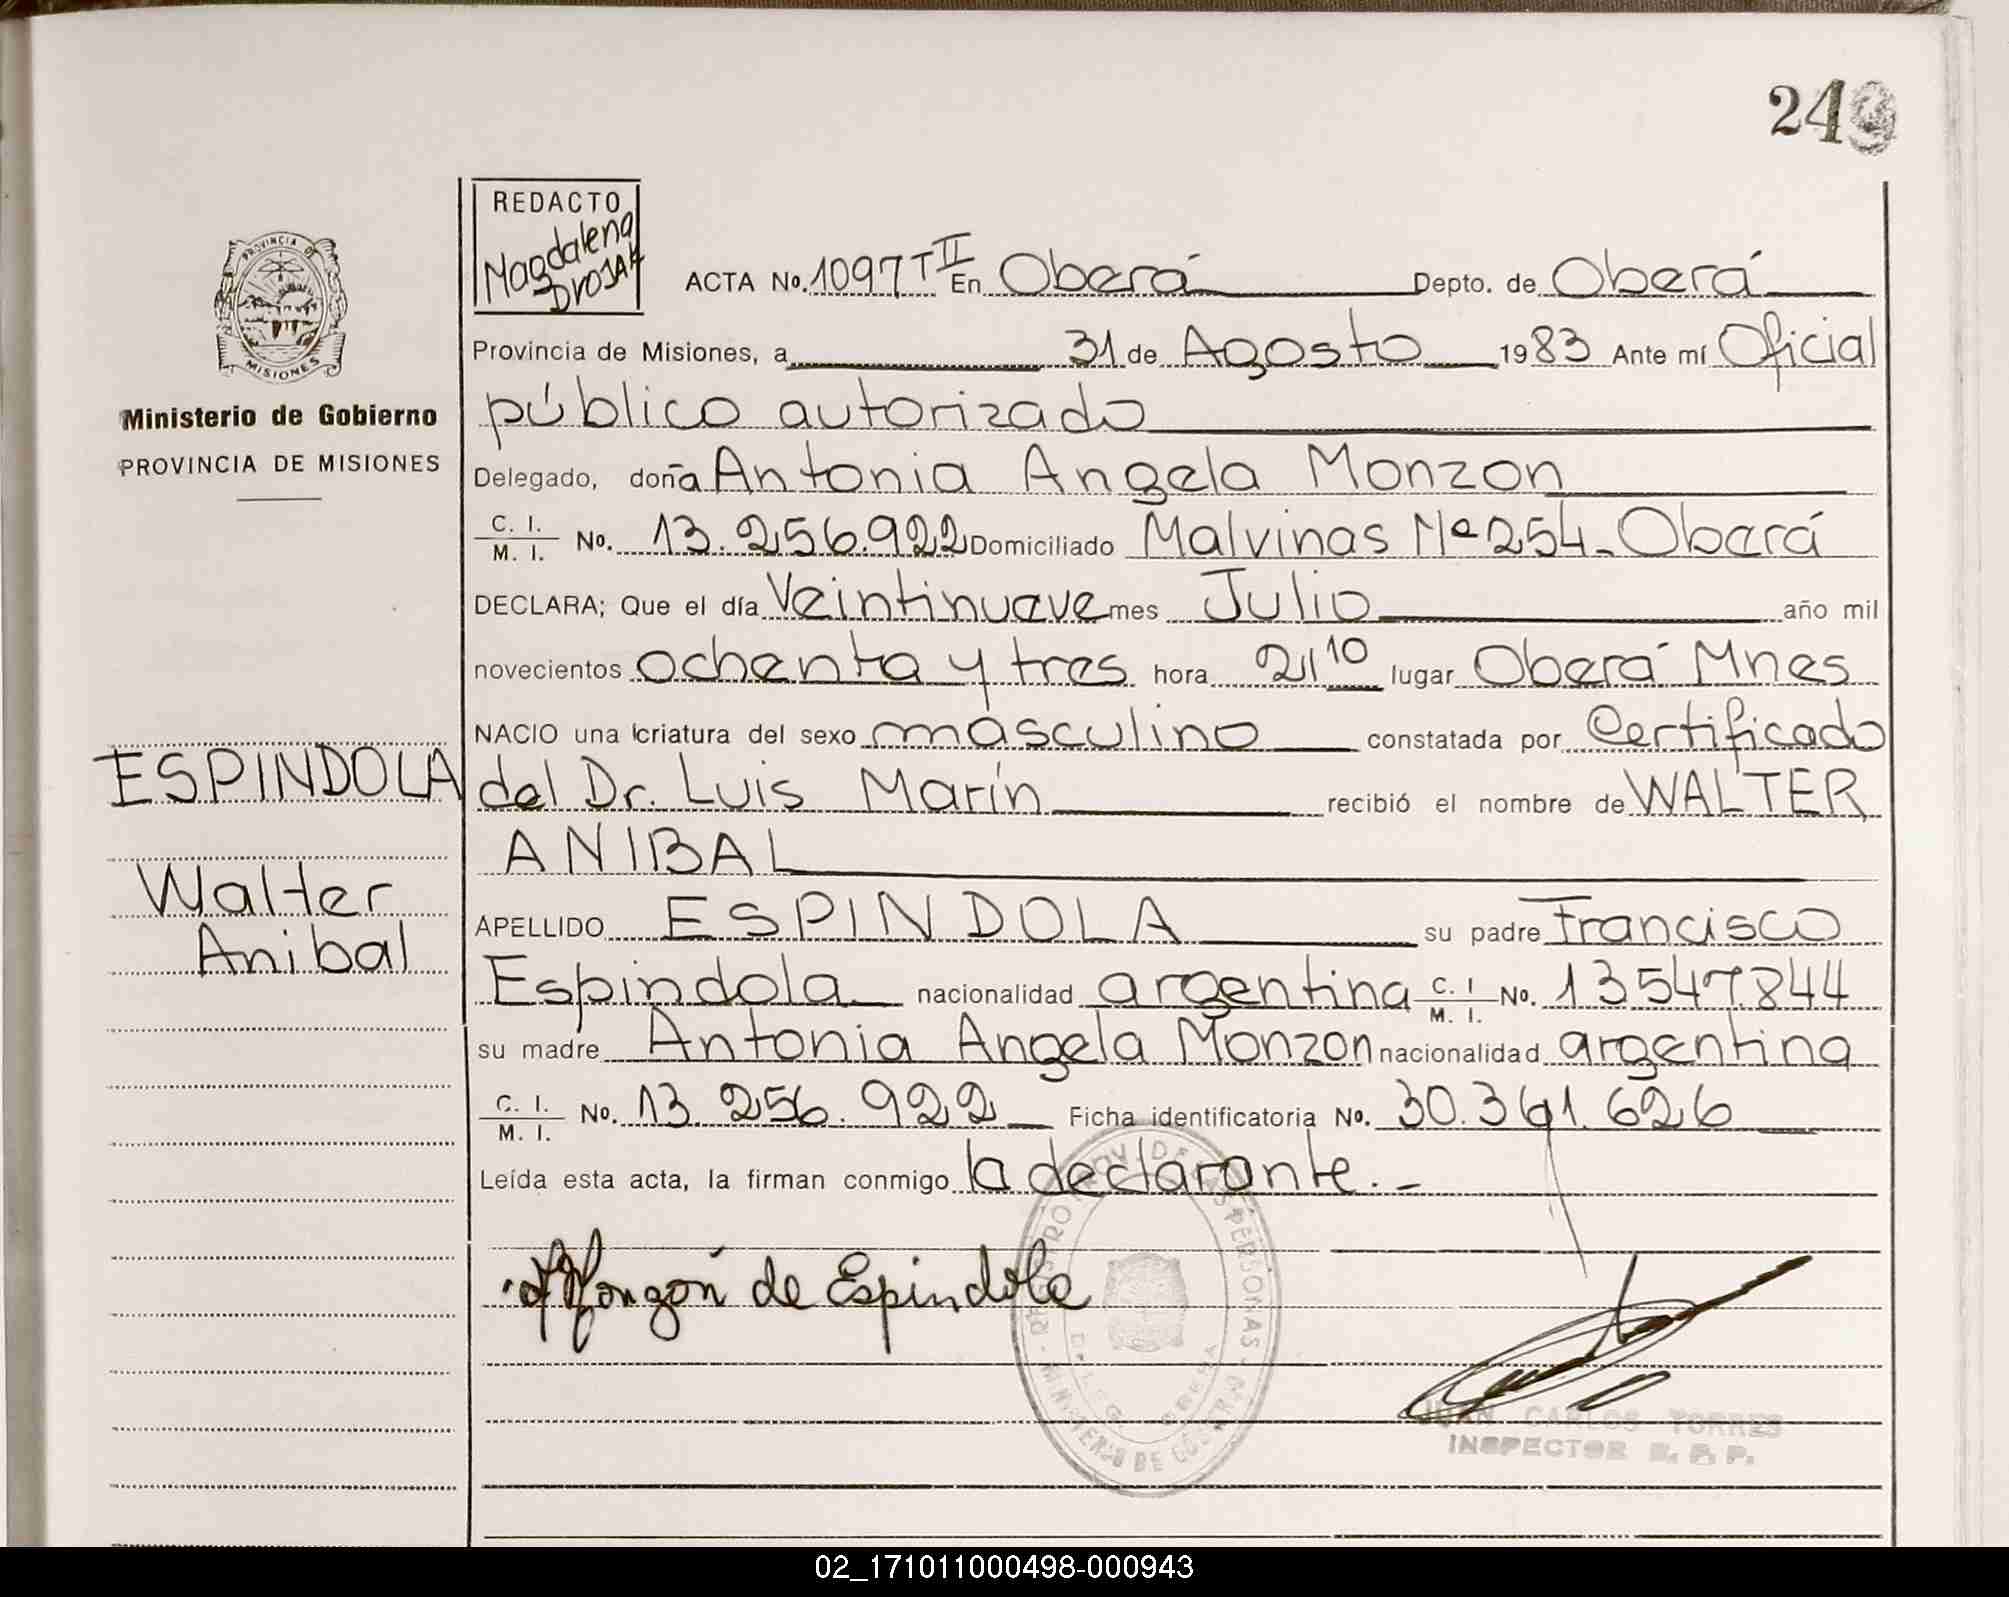 24
REDACTO
Magdalena
Drosak
ACTA No. 1097 T II En Oberá Depto. de Oberá
Provincia de Misiones, a 31 de Agosto 1983 Ante mí Oficial
público autorizado
Delegado, doña Antonia Angela Monzon
C. I. / M. I. No. 13.256.922 Domiciliado Malvinas Nº 254 - Oberá
DECLARA; Que el día Veintinueve mes Julio año mil
novecientos ochenta y tres hora 21 10 lugar Oberá Mnes
NACIO una criatura del sexo masculino constatada por Certificado
del Dr. Luis Marín recibió el nombre de WALTER
ANIBAL
APELLIDO ESPINDOLA su padre Francisco
Espindola nacionalidad argentina C. I / M. I. No. 13547.844
su madre Antonia Angela Monzon nacionalidad argentina
C. I. / M. I. No. 13.256.922 Ficha identificatoria No. 30.361.626
Leída esta acta, la firman conmigo la declarante.-
Monzón de Espindola
PROVINCIA DE
MISIONES
Ministerio de Gobierno
PROVINCIA DE MISIONES
ESPINDOLA
Walter
Anibal
REGISTRO PROV. DE LAS PERSONAS
MINISTERIO DE GOBIERNO
DELEG. OBERA
JUAN CARLOS TORRES
INSPECTOR R. P. P.
02_171011000498-000943